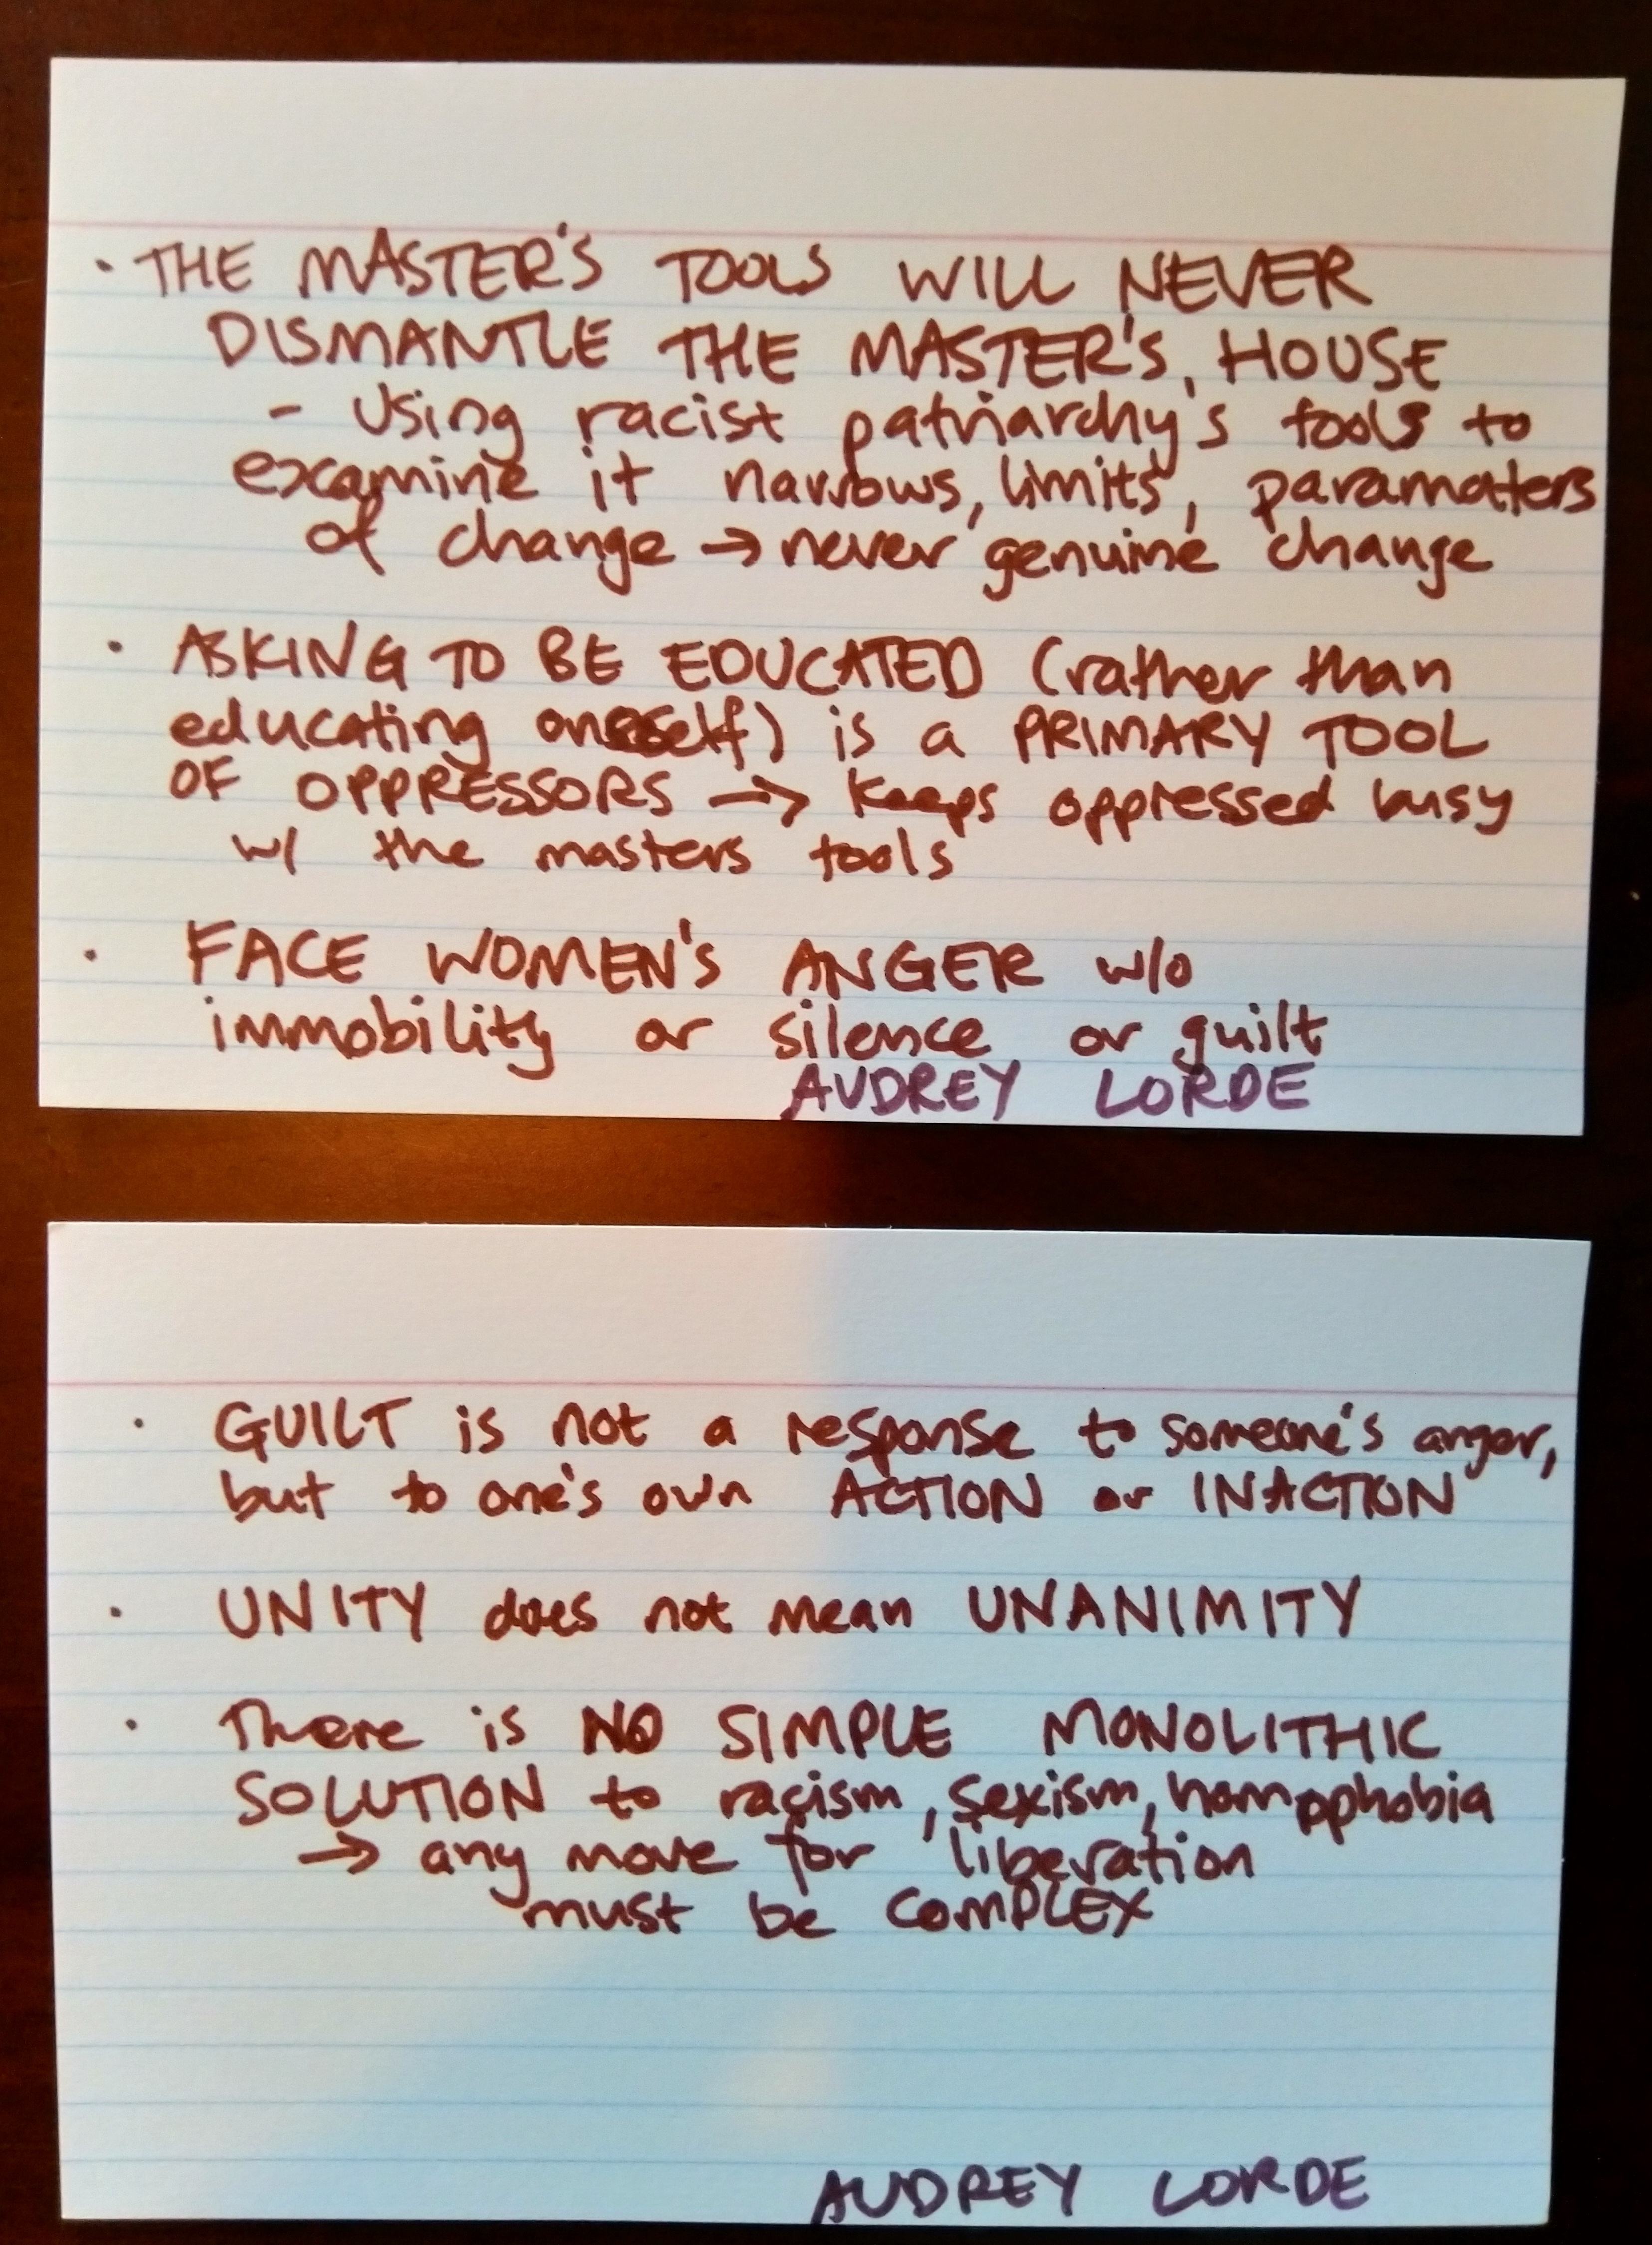 • THE MASTER'S TOOLS WILL NEVER
DISMANTLE THE MASTER'S HOUSE
- Using racist patriarchy's tools to
examine it narrows, limits, paramaters
of change → never genuine change
• ASKING TO BE EDUCATED (rather than
educating oneself) is a PRIMARY TOOL
OF OPPRESSORS → keeps oppressed busy
w/ the masters tools
• FACE WOMEN'S ANGER w/o
immobility or silence or guilt
AUDREY LORDE
• GUILT is not a response to someone's anger,
but to one's own ACTION or INACTION
• UNITY does not mean UNANIMITY
• There is NO SIMPLE MONOLITHIC
SOLUTION to racism, sexism, homophobia
→ any move for liberation
must be COMPLEX
AUDREY LORDE